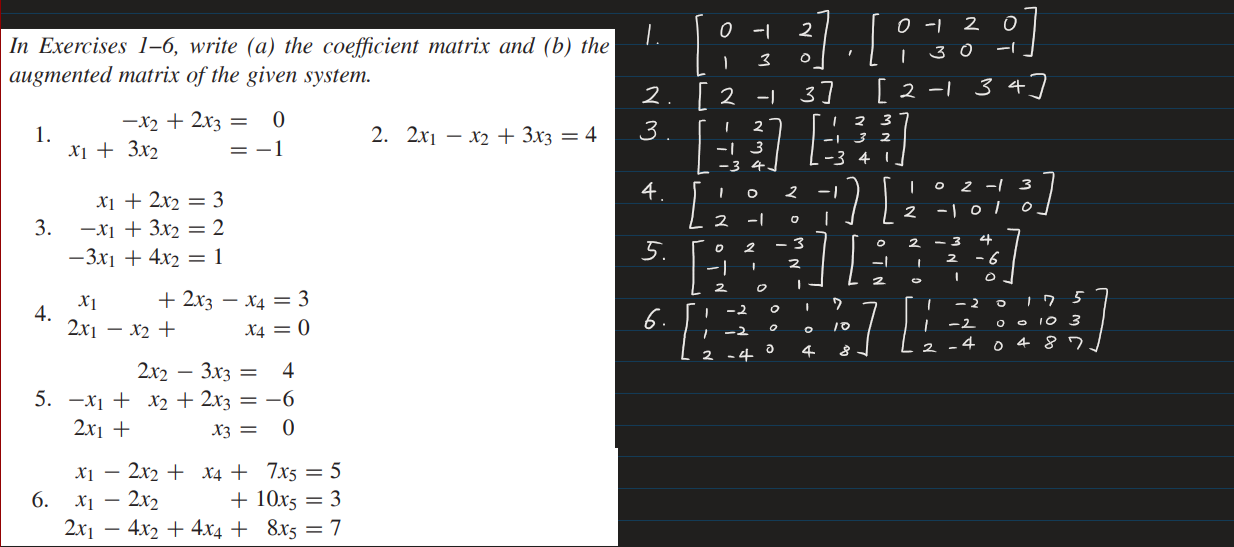 In Exercises 1–6, write (a) the coefficient matrix and (b) the
augmented matrix of the given system.
1. −x₂ + 2x₃ = 0
x₁ + 3x₂ = −1
2. 2x₁ − x₂ + 3x₃ = 4
x₁ + 2x₂ = 3
3. −x₁ + 3x₂ = 2
−3x₁ + 4x₂ = 1
4. x₁ + 2x₃ − x₄ = 3
2x₁ − x₂ + x₄ = 0
2x₂ − 3x₃ = 4
5. −x₁ + x₂ + 2x₃ = −6
2x₁ + x₃ = 0
x₁ − 2x₂ + x₄ + 7x₅ = 5
6. x₁ − 2x₂ + 10x₅ = 3
2x₁ − 4x₂ + 4x₄ + 8x₅ = 7
1. [0 -1 2] , [0 -1 2 0]
[1 3 0] [1 3 0 -1]
2. [2 -1 3] [2 -1 3 4]
3. [1 2] [1 2 3]
[-1 3] [-1 3 2]
[-3 4] [-3 4 1]
4. [1 0 2 -1] [1 0 2 -1 3]
[2 -1 0 1] [2 -1 0 1 0]
5. [0 2 -3] [0 2 -3 4]
[-1 1 2] [-1 1 2 -6]
[2 0 1] [2 0 1 0]
6. [1 -2 0 1 7] [1 -2 0 1 7 5]
[1 -2 0 0 10] [1 -2 0 0 10 3]
[2 -4 0 4 8] [2 -4 0 4 8 7]